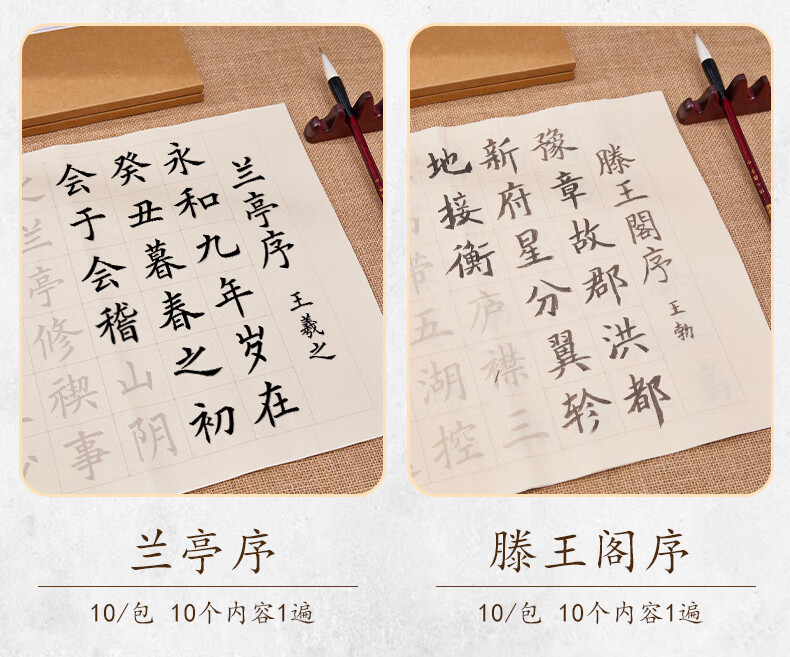 兰亭序
王羲之
永和九年岁在
癸丑暮春之初
会于会稽山阴
之兰亭修禊事
滕王阁序
王勃
豫章故郡洪都
新府星分翼轸
地接衡庐襟三
带五湖控
兰亭序
10/包 10个内容1遍
滕王阁序
10/包 10个内容1遍